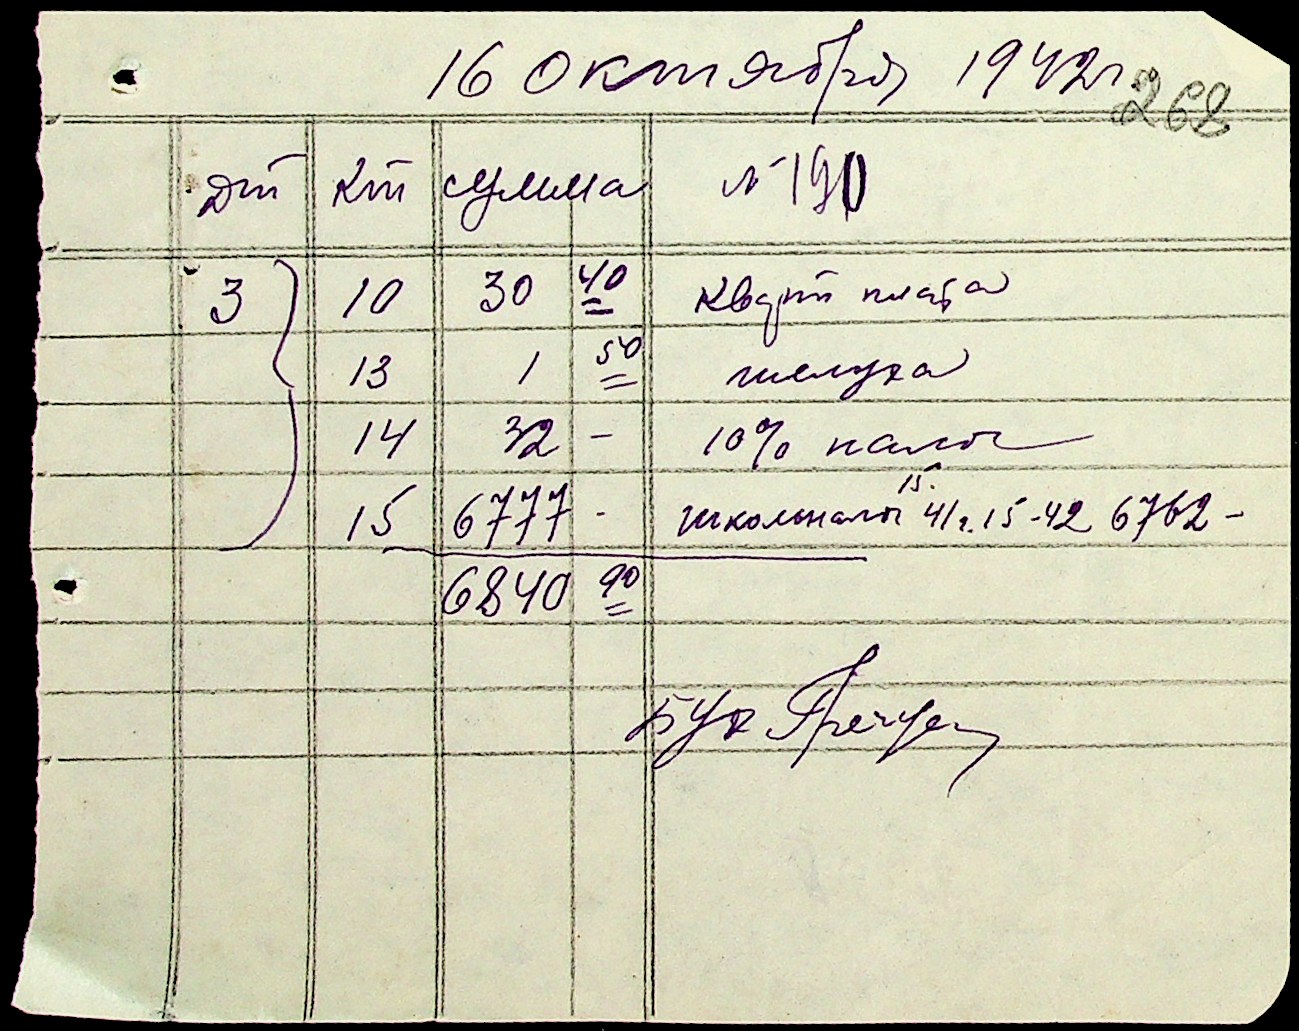 16 октября 1942 г
262
Дт Кт сумма № 190
3 10 30 40 Кварт плата
13 1 50 шелуха
14 32 - 10% налог
15.
15 6777 - школьналог 41 г. 15 - 42 6762 -
6840 90
Бух